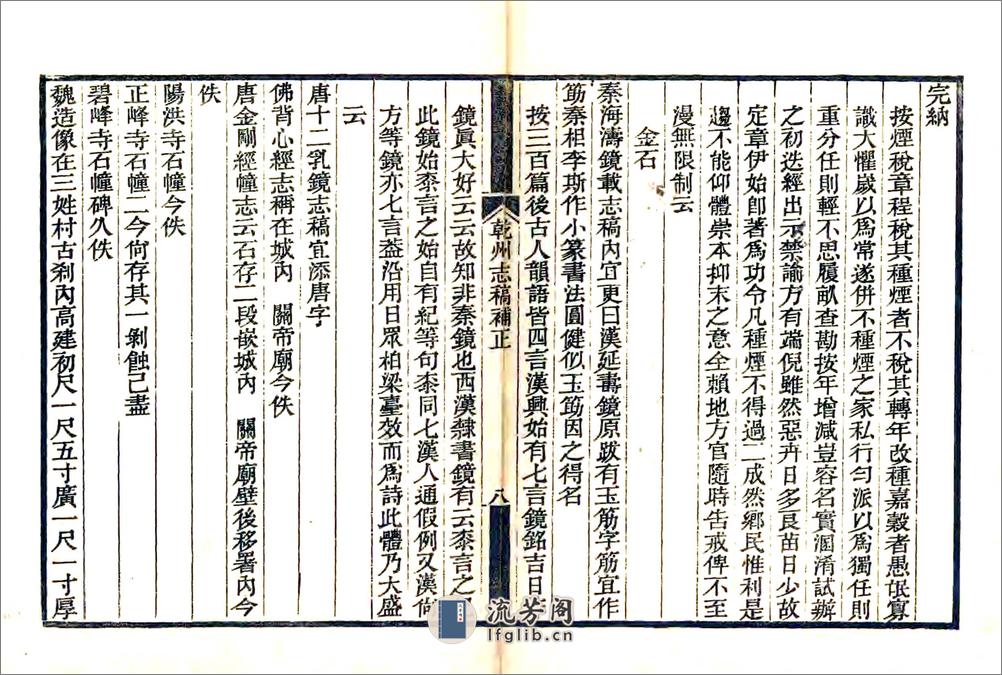 完納
按煙稅章程稅其種煙者不稅其轉年改種嘉穀者愚氓寡
識大懼歲以為常遂併不種煙之家私行勻派以為獨任則
重分任則輕不思履畝查勘按年增減豈容名實溷淆試辦
之初迭經出示禁諭方有端倪雖然惡卉日多良苗日少故
定章伊始卽著為功令凡種煙不得過二成然鄉民惟利是
趨不能仰體崇本抑末之意全賴地方官隨時告戒俾不至
漫無限制云
金石
秦海濤鏡載志稿內宜更曰漢延壽鏡原跋有玉筋字筋宜作
筯秦相李斯作小篆書法圓健似玉筯因之得名
按三百篇後古人韻語皆四言漢興始有七言鏡銘吉日
乾州志稿補正
八
鏡眞大好云云故知非秦鏡也西漢隸書鏡有云桼言之
此鏡始桼言之始自有紀等句桼同七漢人通假例又漢尙
方等鏡亦七言葢沿用日眾柏梁臺效而為詩此體乃大盛
云
唐十二乳鏡志稿宜添唐字
佛背心經志稱在城內 關帝廟今佚
唐金剛經幢志云石存二段嵌城內 關帝廟壁後移署內今
佚
陽洪寺石幢今佚
正峰寺石幢二今尙存其一剝蝕已盡
碧峰寺石幢碑久佚
魏造像在三姓村古剎內高建初尺一尺五寸廣一尺一寸厚
流芳阁
lfglib.cn